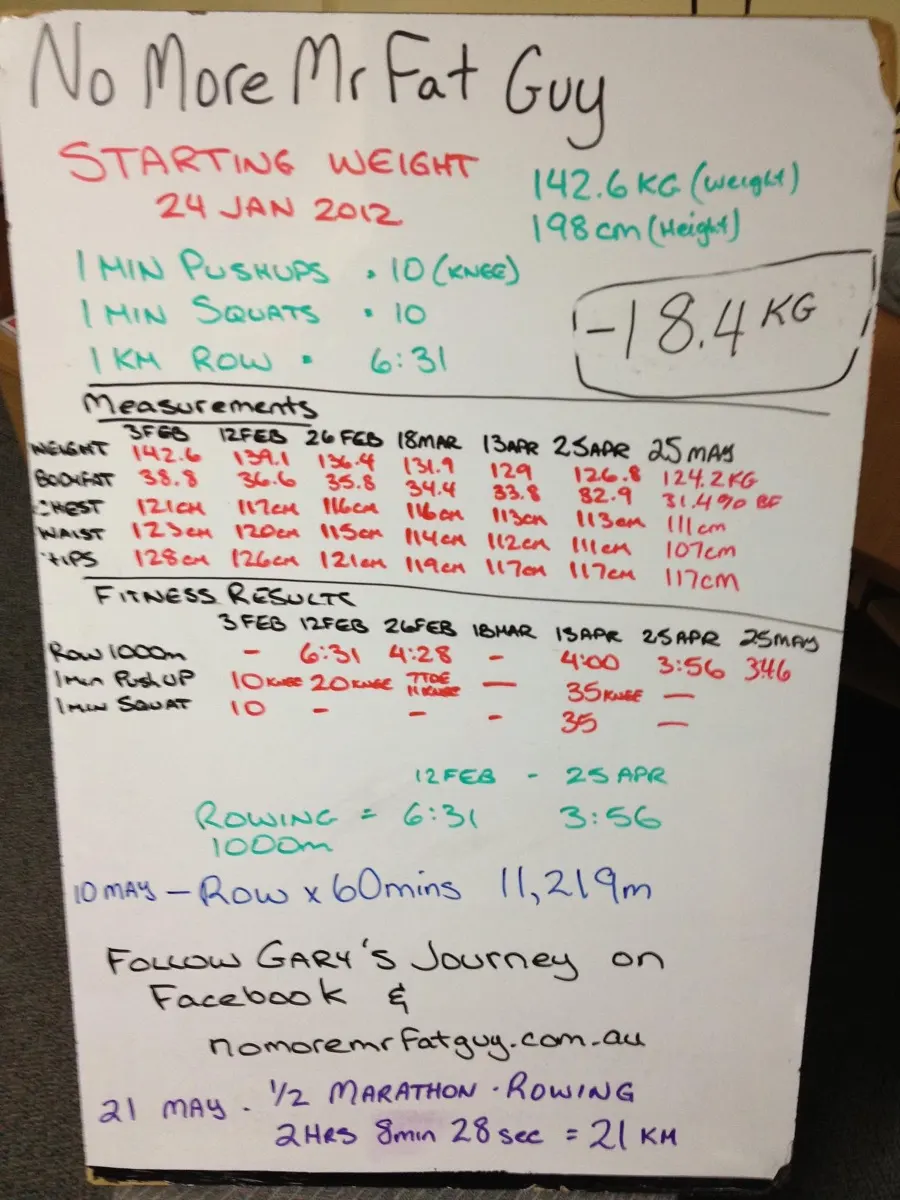 No More Mr Fat Guy
STARTING WEIGHT
24 JAN 2012
142.6 KG (Weight)
198 cm (Height)
1 MIN PUSHUPS • 10 (KNEE)
1 MIN SQUATS • 10
1 KM ROW • 6:31
-18.4 KG
Measurements
3 FEB 12 FEB 26 FEB 18 MAR 13 APR 25 APR 25 MAY
WEIGHT 142.6 139.1 136.4 131.9 129 126.8 124.2 KG
BODYFAT 38.8 36.6 35.8 34.4 33.8 32.9 31.4% BF
CHEST 121cm 117cm 116cm 116cm 113cm 113cm 111cm
WAIST 123cm 120cm 115cm 114cm 112cm 111cm 107cm
HIPS 128cm 126cm 121cm 119cm 117cm 117cm 117cm
FITNESS RESULTS
3 FEB 12 FEB 26 FEB 18 MAR 13 APR 25 APR 25 MAY
Row 1000m - 6:31 4:28 - 4:00 3:56 346
1 min Push UP 10 KNEE 20 KNEE 7 TOE 11 KNEE - 35 KNEE -
1 min SQUAT 10 - - - 35 -
12 FEB - 25 APR
ROWING = 6:31 3:56
1000m
10 MAY - ROW x 60mins 11,219m
FOLLOW GARY'S Journey on
Facebook &
nomoremrfatguy.com.au
21 MAY • 1/2 MARATHON • ROWING
2 HRS 8min 28 sec = 21 KM